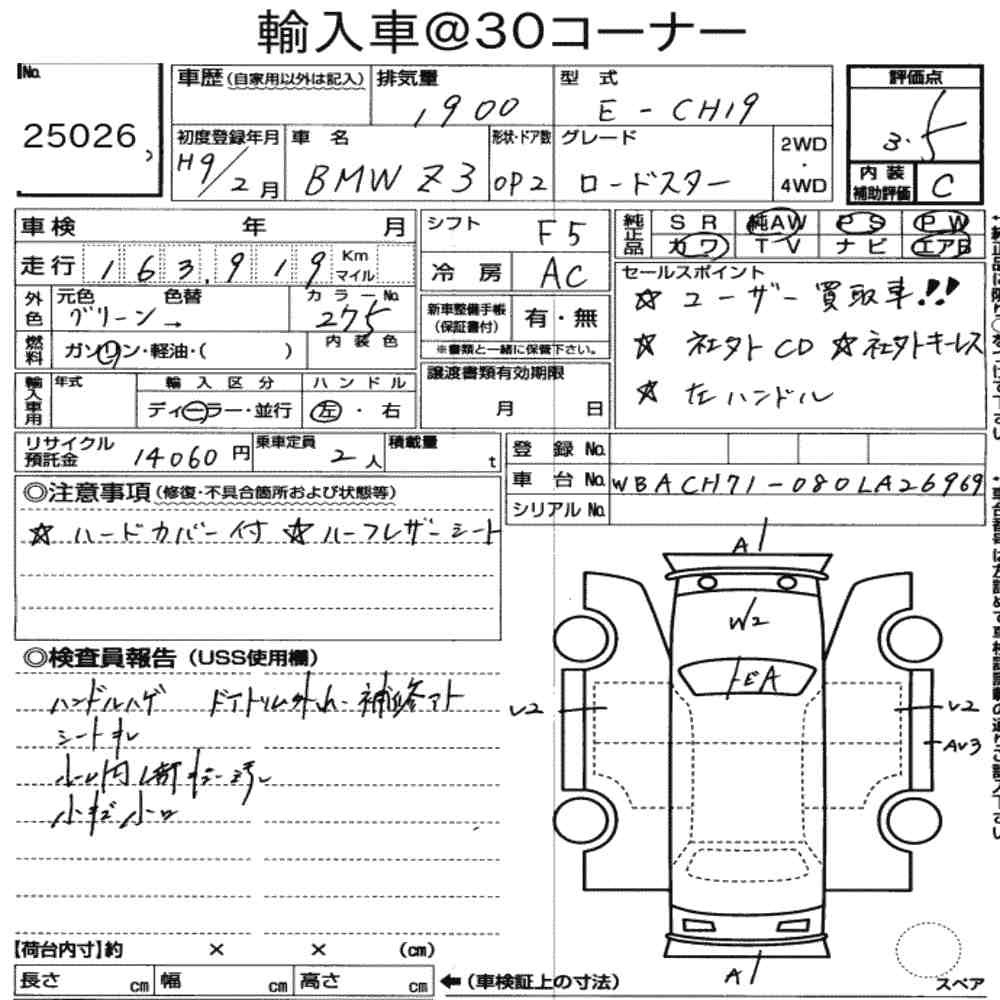 輸入車@30コーナー
No.
25026
車歴(自家用以外は記入)
排気量
1900
型式
E-CH19
評価点
3.5
初度登録年月
H9/2月
車名
BMW Z3
形状・ドア数
OP2
グレード
ロードスター
2WD
・
4WD
内装
補助評価
C
車検 年 月
シフト
F5
純正品
SR 純AW PS PW
カワ TV ナビ エアB
走行 163,919 Km マイル
冷房
AC
セールスポイント
☆ ユーザー買取車!!
☆ 社外CD ☆社外キーレス
☆ 左ハンドル
外色
元色 色替
グリーン→
カラーNo.
275
新車整備手帳
(保証書付)
有・無
※書類と一緒に保管下さい。
燃料
ガソリン・軽油・( )
内装色
輸入車用
年式
輸入区分
ディーラー・並行
ハンドル
左・右
譲渡書類有効期限
月 日
リサイクル
預託金
14060円
乗車定員
2人
積載量
t
登録No.
車台No.
WBACH71-080LA26969
シリアルNo.
◎注意事項(修復・不具合箇所および状態等)
☆ ハードカバー付 ☆ ハーフレザーシート
◎検査員報告(USS使用欄)
ハンドルハゲ
ドアトリム外れ・補修アト
シートキレ
小キズ小凹
A1
W2
トEA
A1
AU3
【荷台内寸】約 × × (cm)
長さ cm 幅 cm 高さ cm
←(車検証上の寸法)
スペア